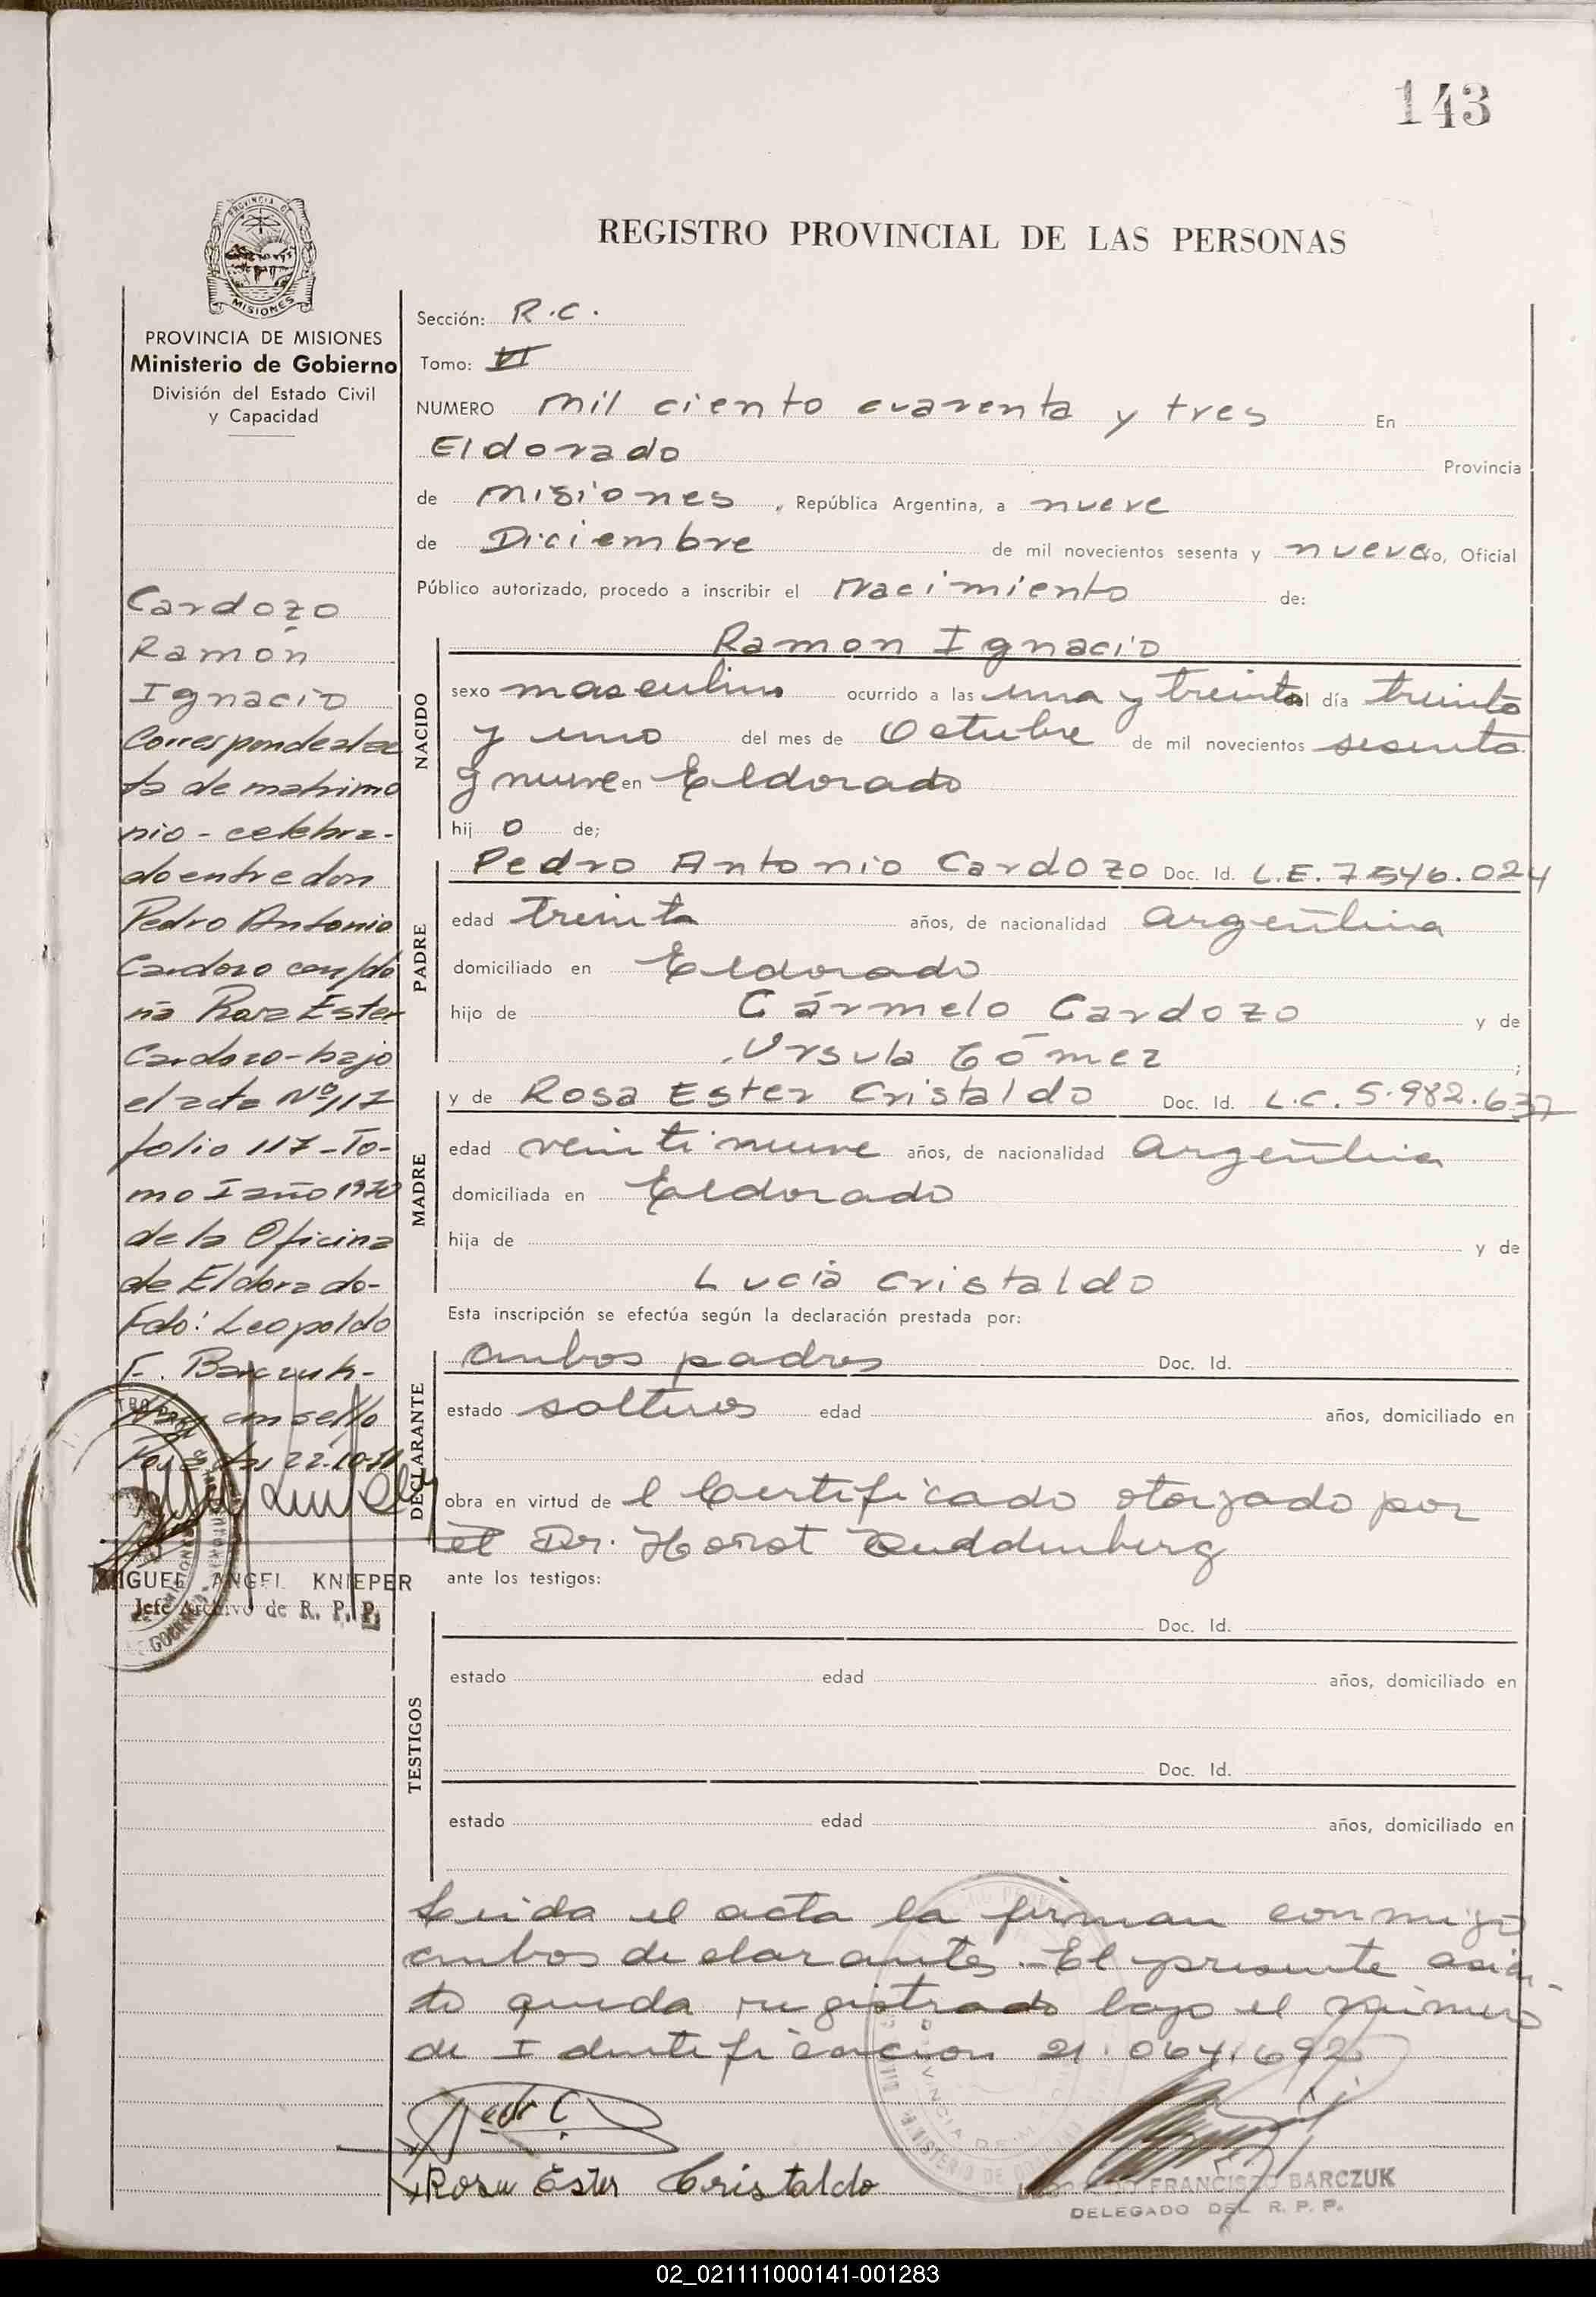 143
PROVINCIA DE
MISIONES
REGISTRO PROVINCIAL DE LAS PERSONAS
PROVINCIA DE MISIONES
Ministerio de Gobierno
División del Estado Civil
y Capacidad
Cardozo
Ramón
Ignacio
Corresponde al ac
ta de matrimo
nio - celebra-
do entre don
Pedro Antonio
Cardozo con do
ña Rosa Ester
Cardozo - bajo
el acta Nº 117
folio 117 - To-
mo I año 1970
de la Oficina
de Eldorado-
Fdo: Leopoldo
F. Barczuk-
Hay un sello
Posadas 22-10-
MIGUEL ANGEL KNIEPER
Jefe Archivo de R. P. P.
Sección: R.C.
Tomo: VI
NUMERO mil ciento cuarenta y tres En
Eldorado Provincia
de Misiones, República Argentina, a nueve
de Diciembre de mil novecientos sesenta y nueve, Oficial
Público autorizado, procedo a inscribir el Nacimiento de:
NACIDO
Ramon Ignacio
sexo masculino ocurrido a las una y treinta del día treinta
y uno del mes de Octubre de mil novecientos sesenta
y nueve en Eldorado
hij o de;
PADRE
Pedro Antonio Cardozo Doc. Id. L.E. 7546.024
edad treinta años, de nacionalidad argentina
domiciliado en Eldorado
hijo de Cármelo Cardozo y de
Ursula Gómez ;
MADRE
y de Rosa Ester Cristaldo Doc. Id. L.C. 5.982.637
edad veintinueve años, de nacionalidad argentina
domiciliada en Eldorado
hija de y de
Lucia Cristaldo
Esta inscripción se efectúa según la declaración prestada por:
DECLARANTE
ambos padres Doc. Id.
estado solteros edad años, domiciliado en
obra en virtud de l Certificado otorgado por
el Dr. Horst
ante los testigos:
TESTIGOS
Doc. Id.
estado edad años, domiciliado en
Doc. Id.
estado edad años, domiciliado en
Leida el acta la firman conmigo
ambos declarantes.- El presente asien-
to queda registrado bajo el número
de Identificacion 21.064.692
Pedro C
Rosa Ester Cristaldo
FRANCISCO BARCZUK
DELEGADO DEL R. P. P.
02_021111000141-001283